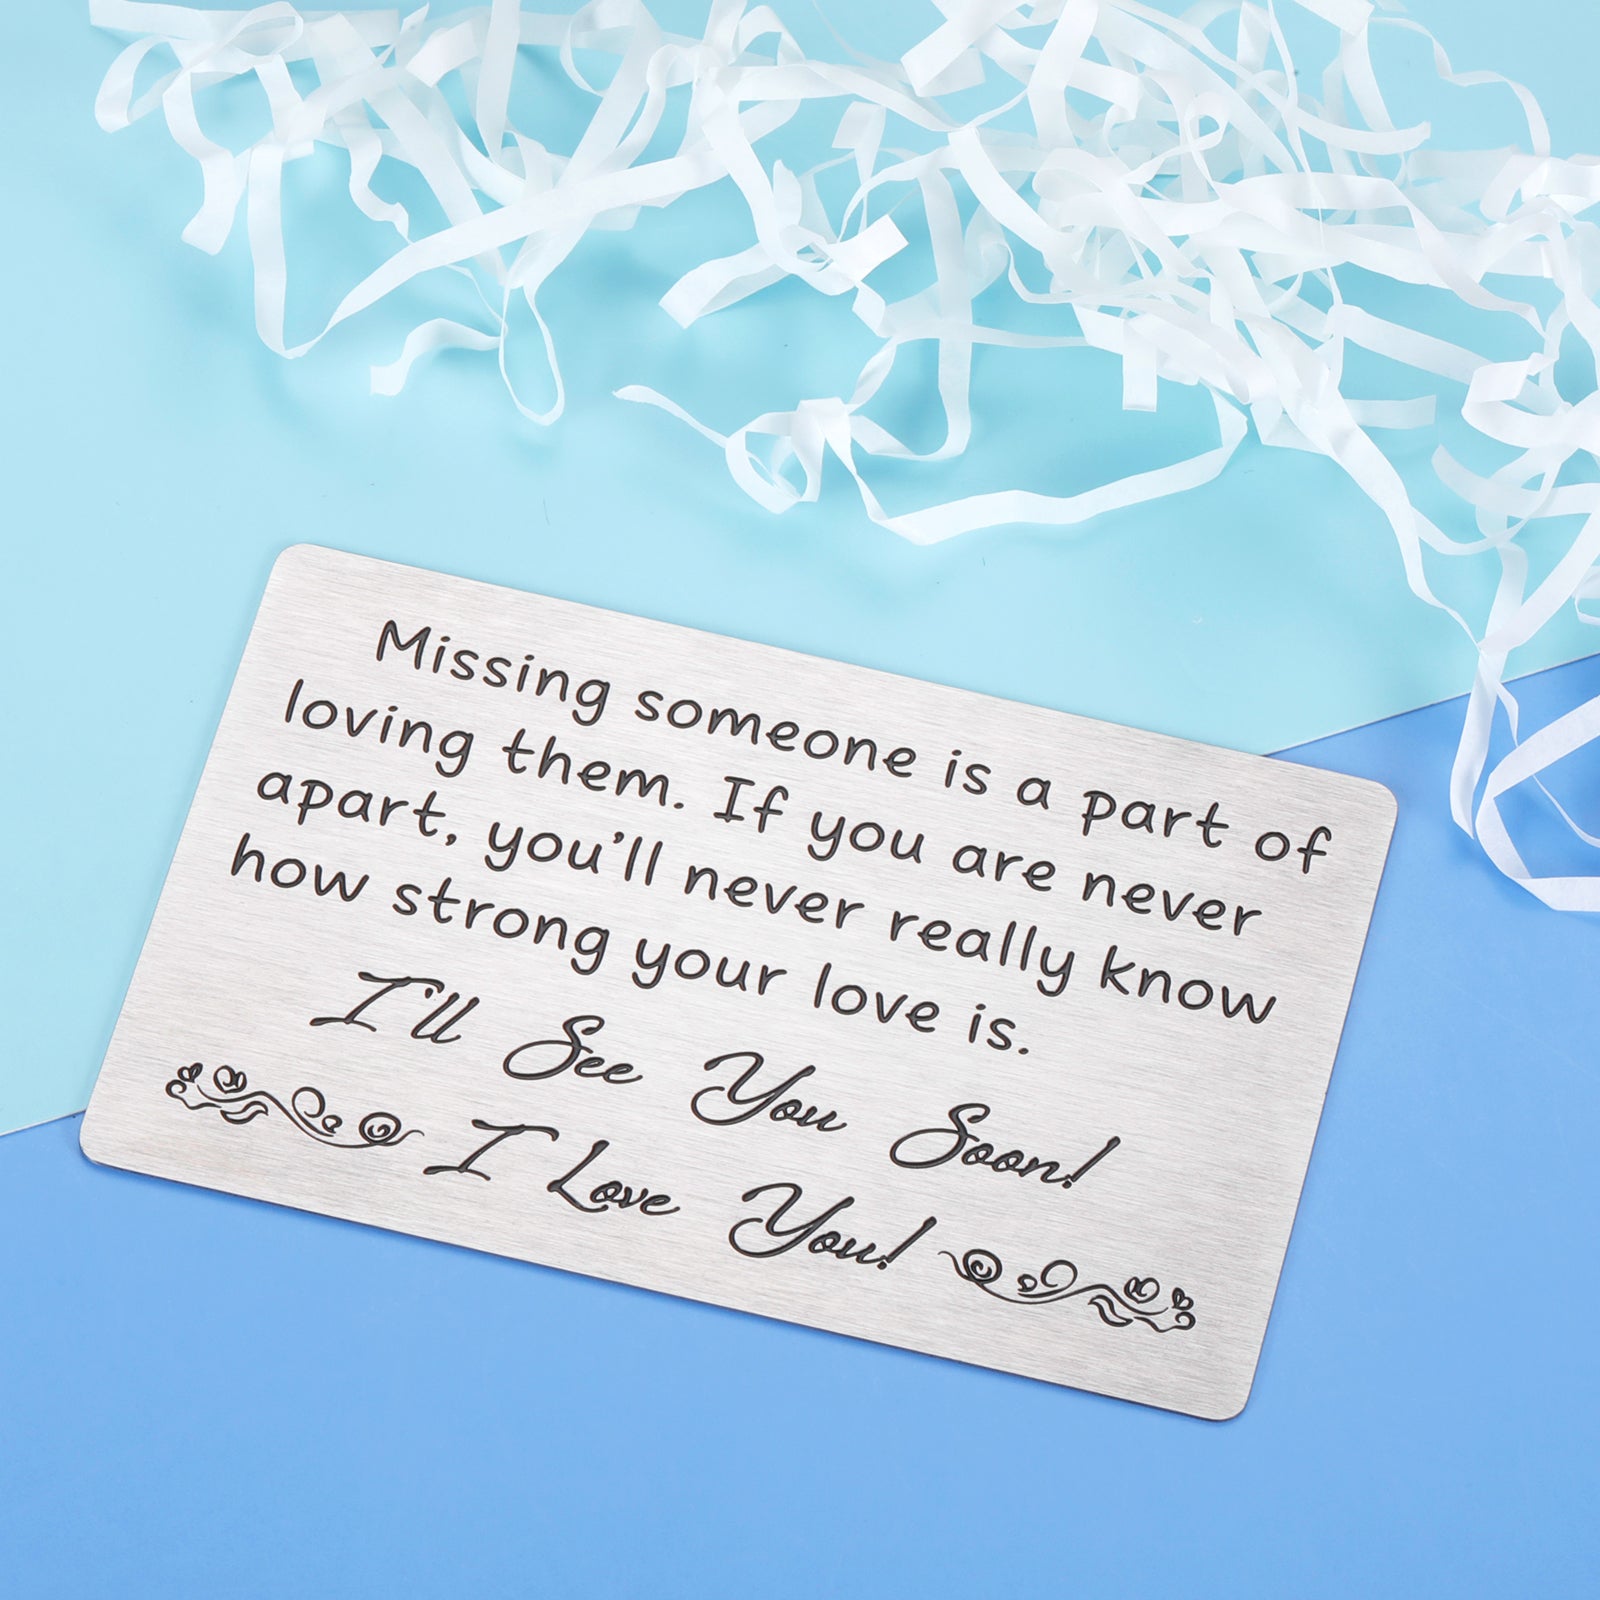 Missing someone is a part of
loving them. If you are never
apart, you'll never really know
how strong your love is.
I'll See You Soon!
I Love You!